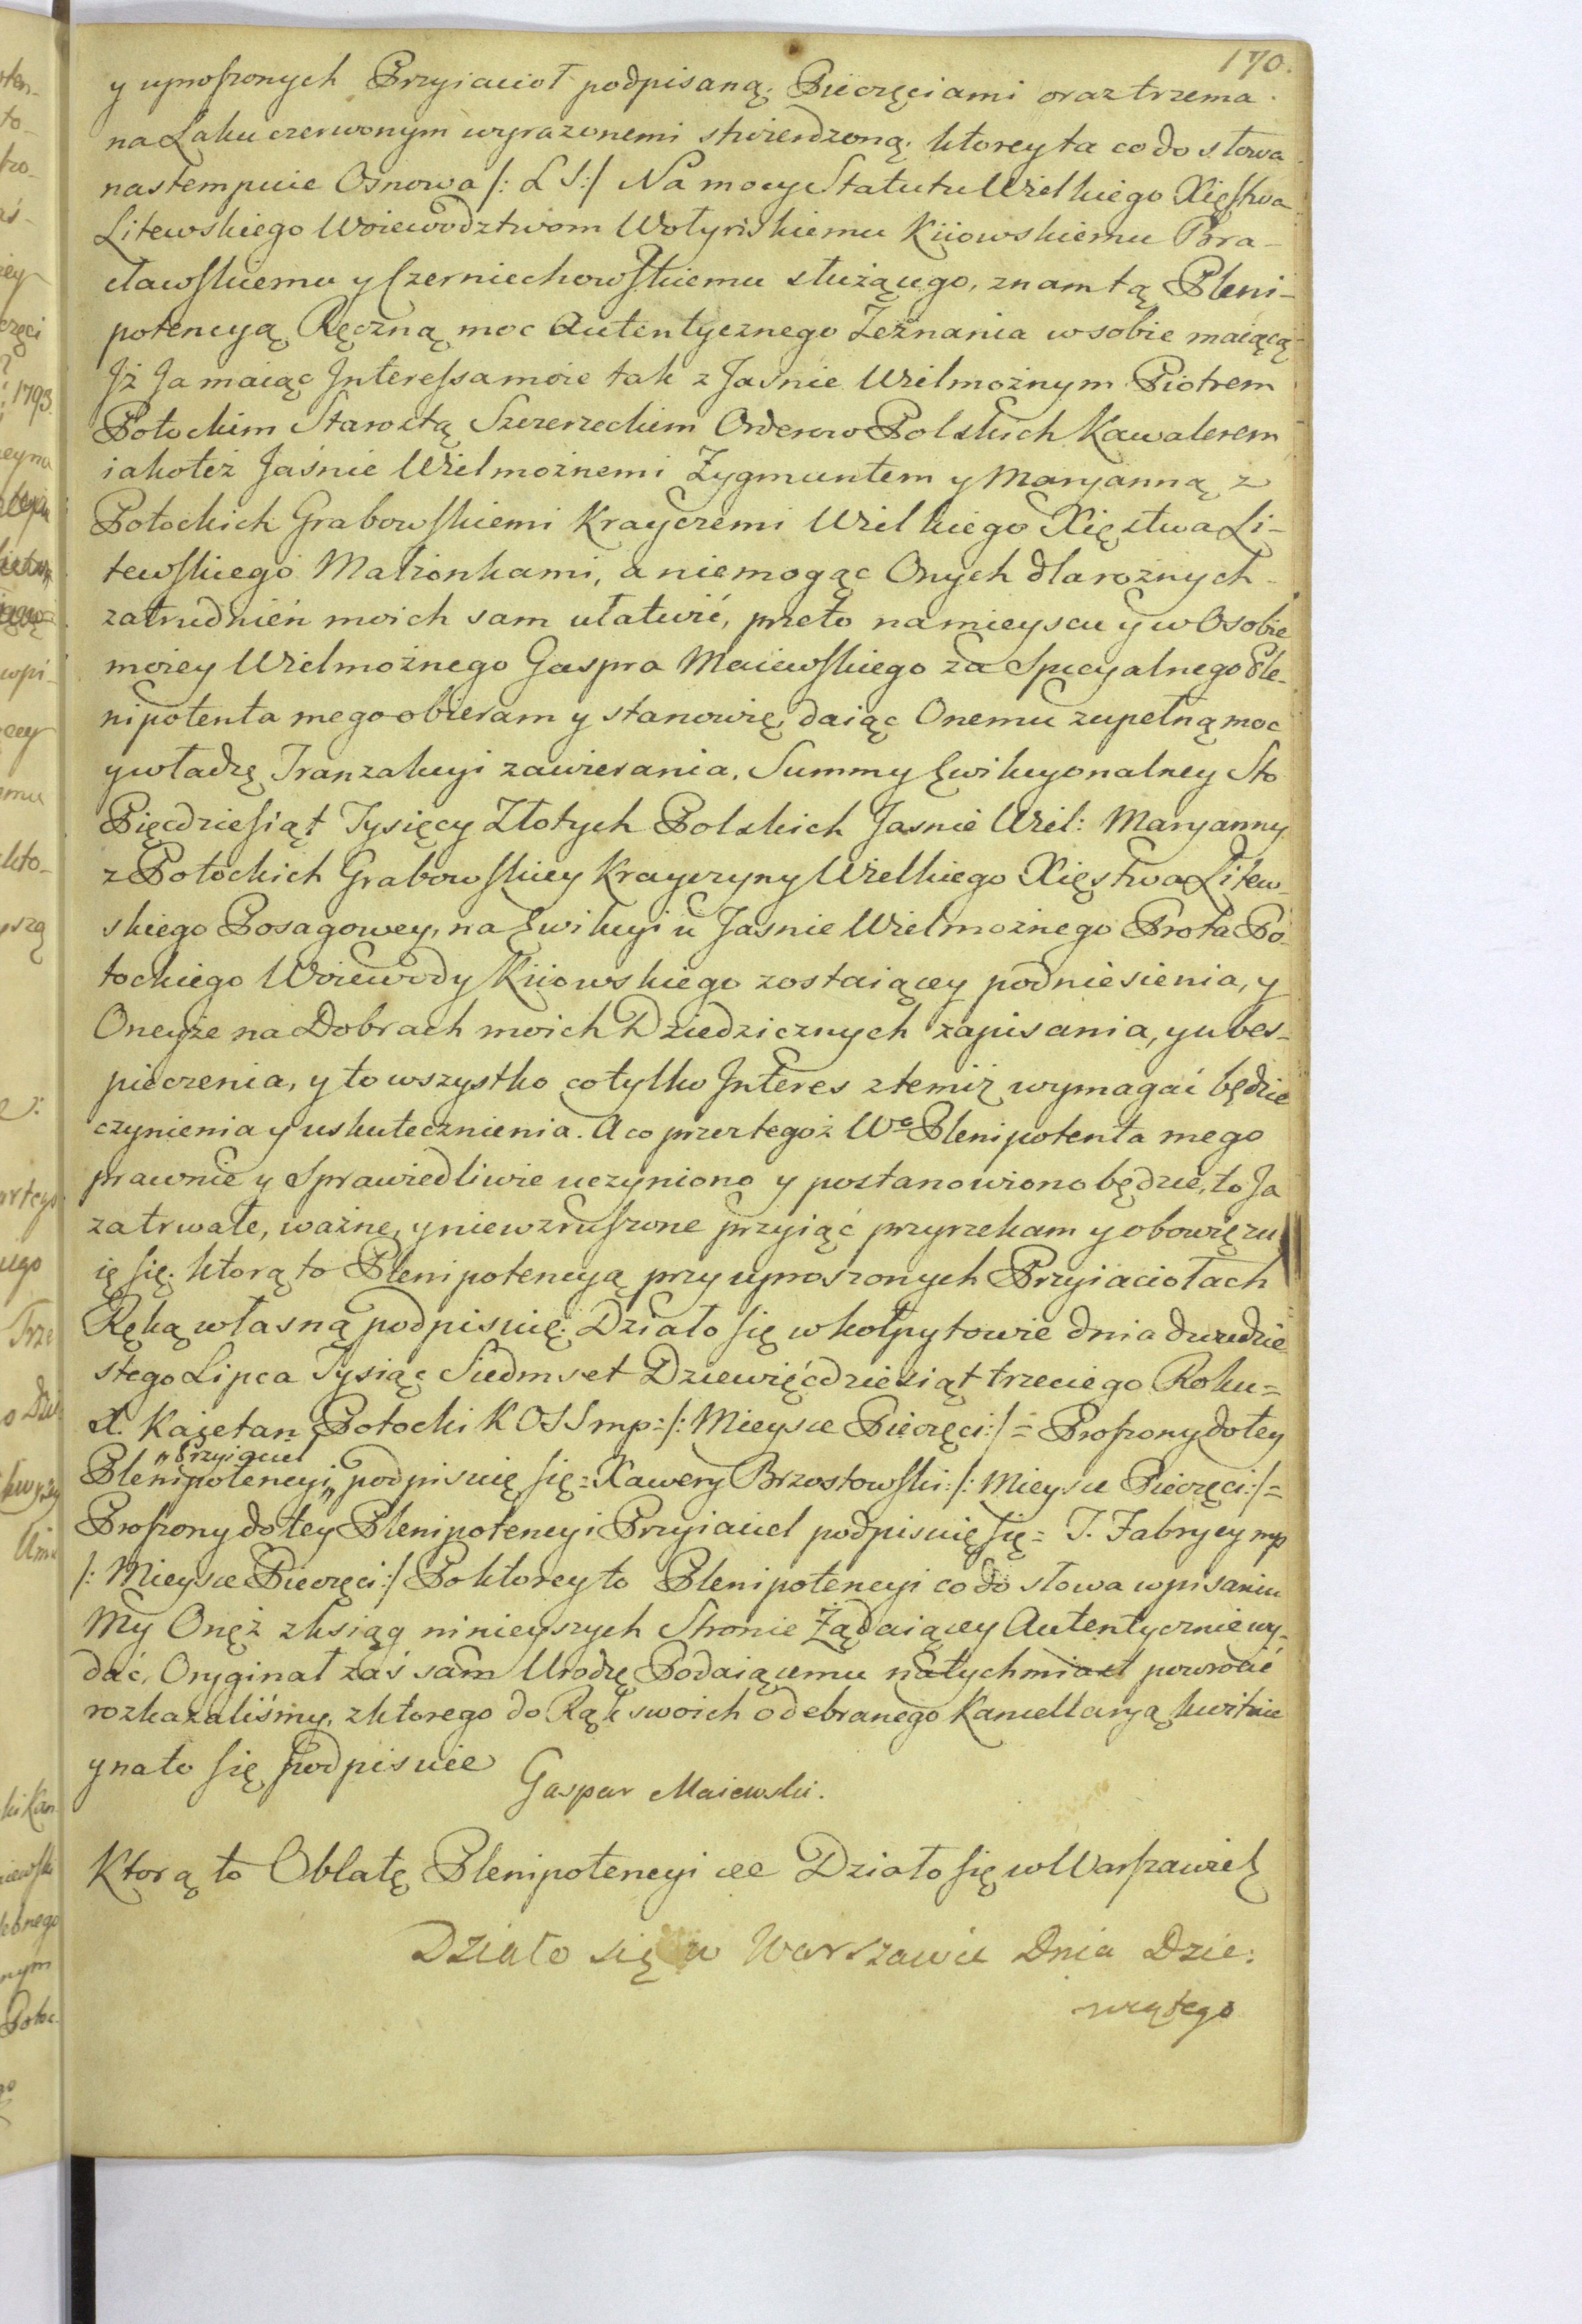 170.
y uproszonych Przyiacioł podpisaną, Pieczęciami oraz trzema
na Laku czerwonym wyrazonemi stwierdzoną, ktorey ta co do słowa
nastempuie Osnowa /: L S :/ Na mocy Statutu Wielkiego Xięstwa
Litewskiego Woiewodztwom Wołyńskiemu Kiiowskiemu Bra-
cławskiemu y Czerniechowskiemu służącego, znam tą Pleni-
potencyą Ręczną moc Autentycznego Zeznania w sobie maiącą
Jż Ja maiąc Interessa moie tak z Jaśnie Wielmożnym Piotrem
Potockim Starostą Szczerzeckim Orderow Polskich Kawalerem
iakoteż Jaśnie Wielmożnemi Zygmuntem y Maryanną z
Potockich Grabowskiemi Krayczemi Wielkiego Xięztwa Li-
tewskiego Małżonkami, a niemogąc Onych dla rożnych
zatrudnień moich sam ułatwić, przeto na mieyscu y w Osobie
moiey Wielmożnego Gaspra Maiewskiego za Specyalnego Ple-
nipotenta mego obieram y stanowię, daiąc Onemu zupełną moc
y władzę Tranzakcyi zawierania, Summy Ewikcyonalney Sto
Pięcdziesiąt Tysięcy Złotych Polskich Jasnie Wiel: Maryanny
z Potockich Grabowskiey Krayczyny Wielkiego Xięstwa Litew-
skiego Posagowey, na Ewikcyi u Jasnie Wielmożnego Prota Po-
tockiego Woiewody Kiiowskiego zostaiącey podniesienia, y
Oneyże na Dobrach moich Dziedzicznych zapisania, y ubes-
pieczenia, y to wszystko co tylko Interes z temiż wymagać będzie
czynienia y uskutecznienia. A co przez tegoż Wo Plenipotenta mego
prawnie y sprawiedliwie uczyniono y postanowiono będzie, to Ja
za trwałe, ważne, y niewzruszone przyiąć przyrzekam y obowięzu
ię się. ktorą to Plenipotencyą przy uproszonych Przyiaciołach
Ręką własną podpisuię. Działo się w Kołpytowie dnia dwudzie
stego Lipca Tysiąc Siedmset Dziewięćdziesiąt trzeciego Roku =
X. Kaietan Potocki K O S S mp = /: Mieysce Pieczęci :/ = Proszony do tey
„Przyiaciel
Plenipotencyi „ podpisuię się = Xawery Brzostowski /: Mieysce Pieczęci :/ =
Proszony do tey Plenipotencyi Przyiaciel podpisuię się = J. Fabrycy mp
/: Mieysce Pieczęci :/ Po ktorey to Plenipotencyi co do słowa wpisaniu
My Onęż z ksiąg ninieyszych Stronie Żądaiącey Autentycznie wy-
dać, Oryginał zaś sam Urodzę Podaiącemu natychmiast powrocić
rozkazaliśmy, z ktorego do Rąk swoich odebranego Kancellaryą kwituie
y na to się podpisuie
Gaspar Maiewski.
Ktorą to Oblatę Plenipotencyi &c Działo się w Warszawie &
Działo się w Warszawie Dnia Dzie:
wiątego